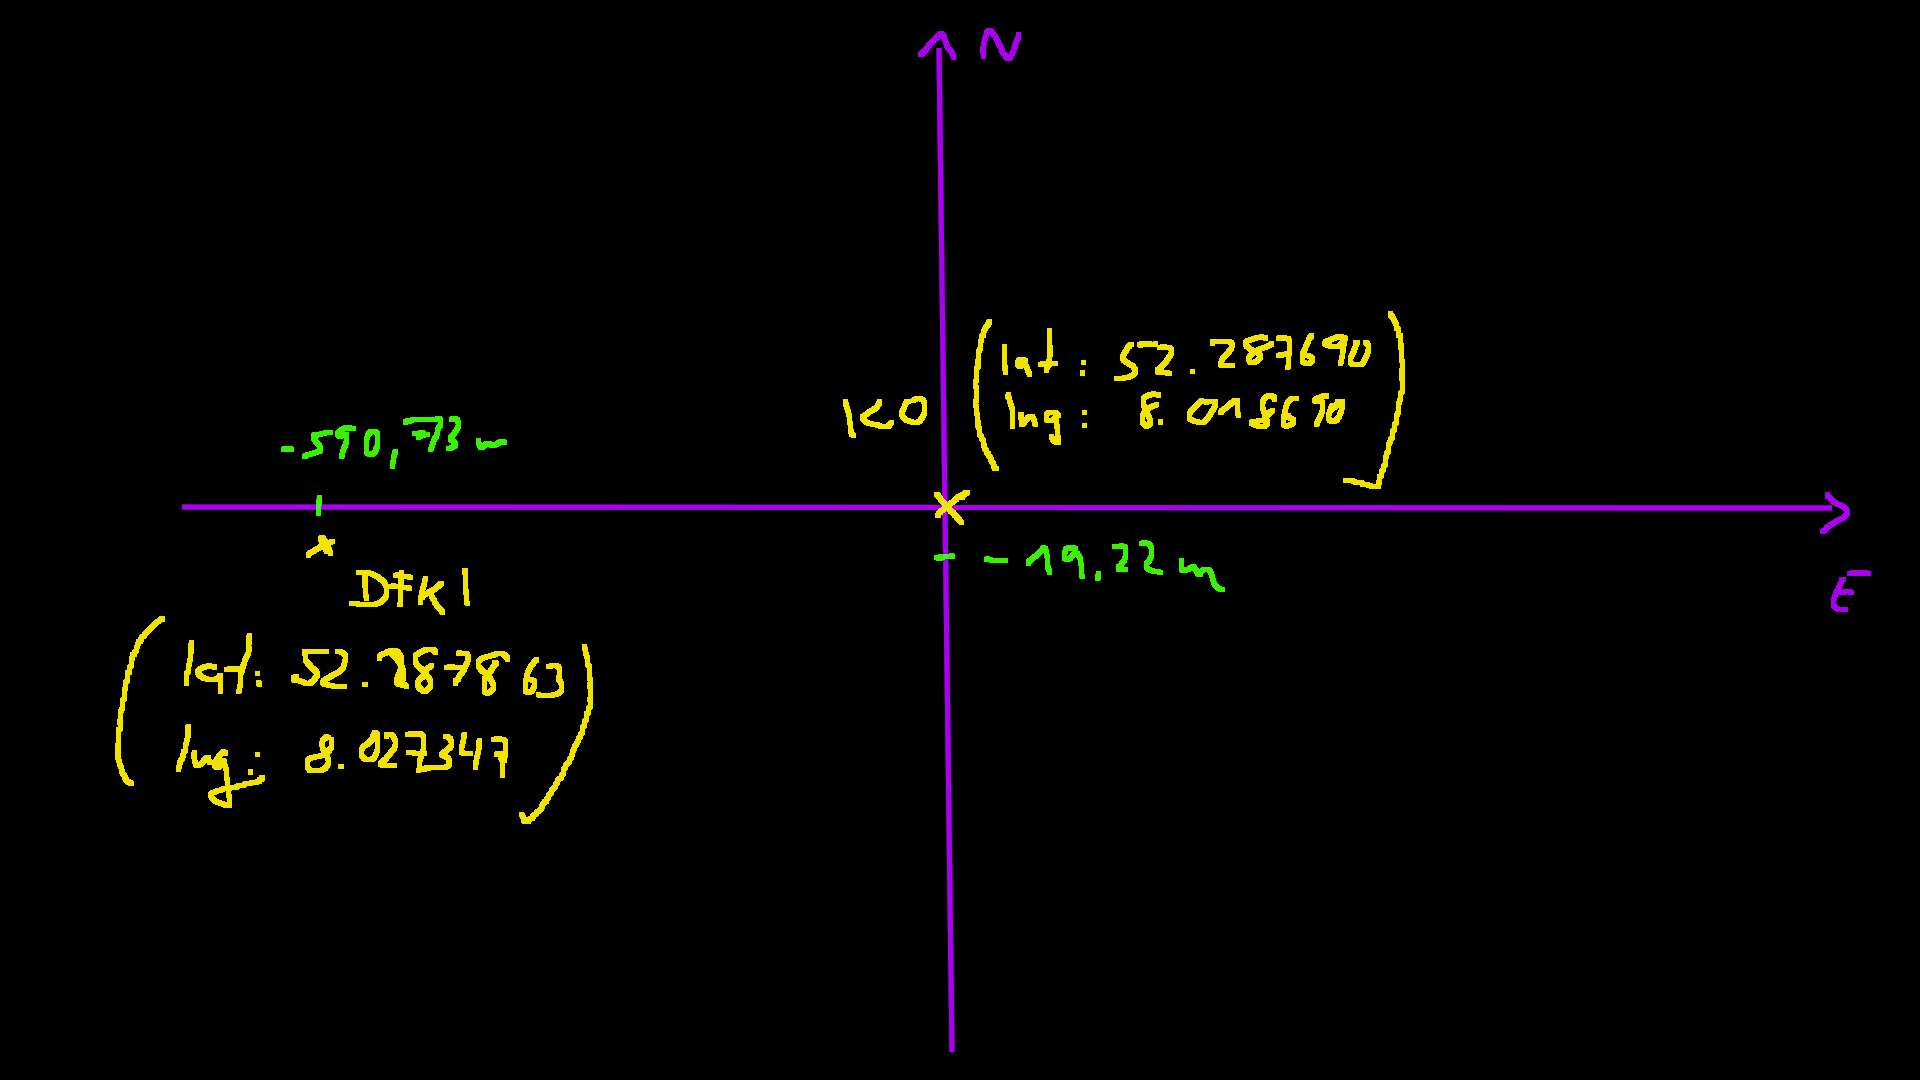 N
lat: 52.287690
lng: 8.018690
K<0
-590,73 m
-19,22 m
E
DFKI
lat: 52.287863
lng: 8.027347